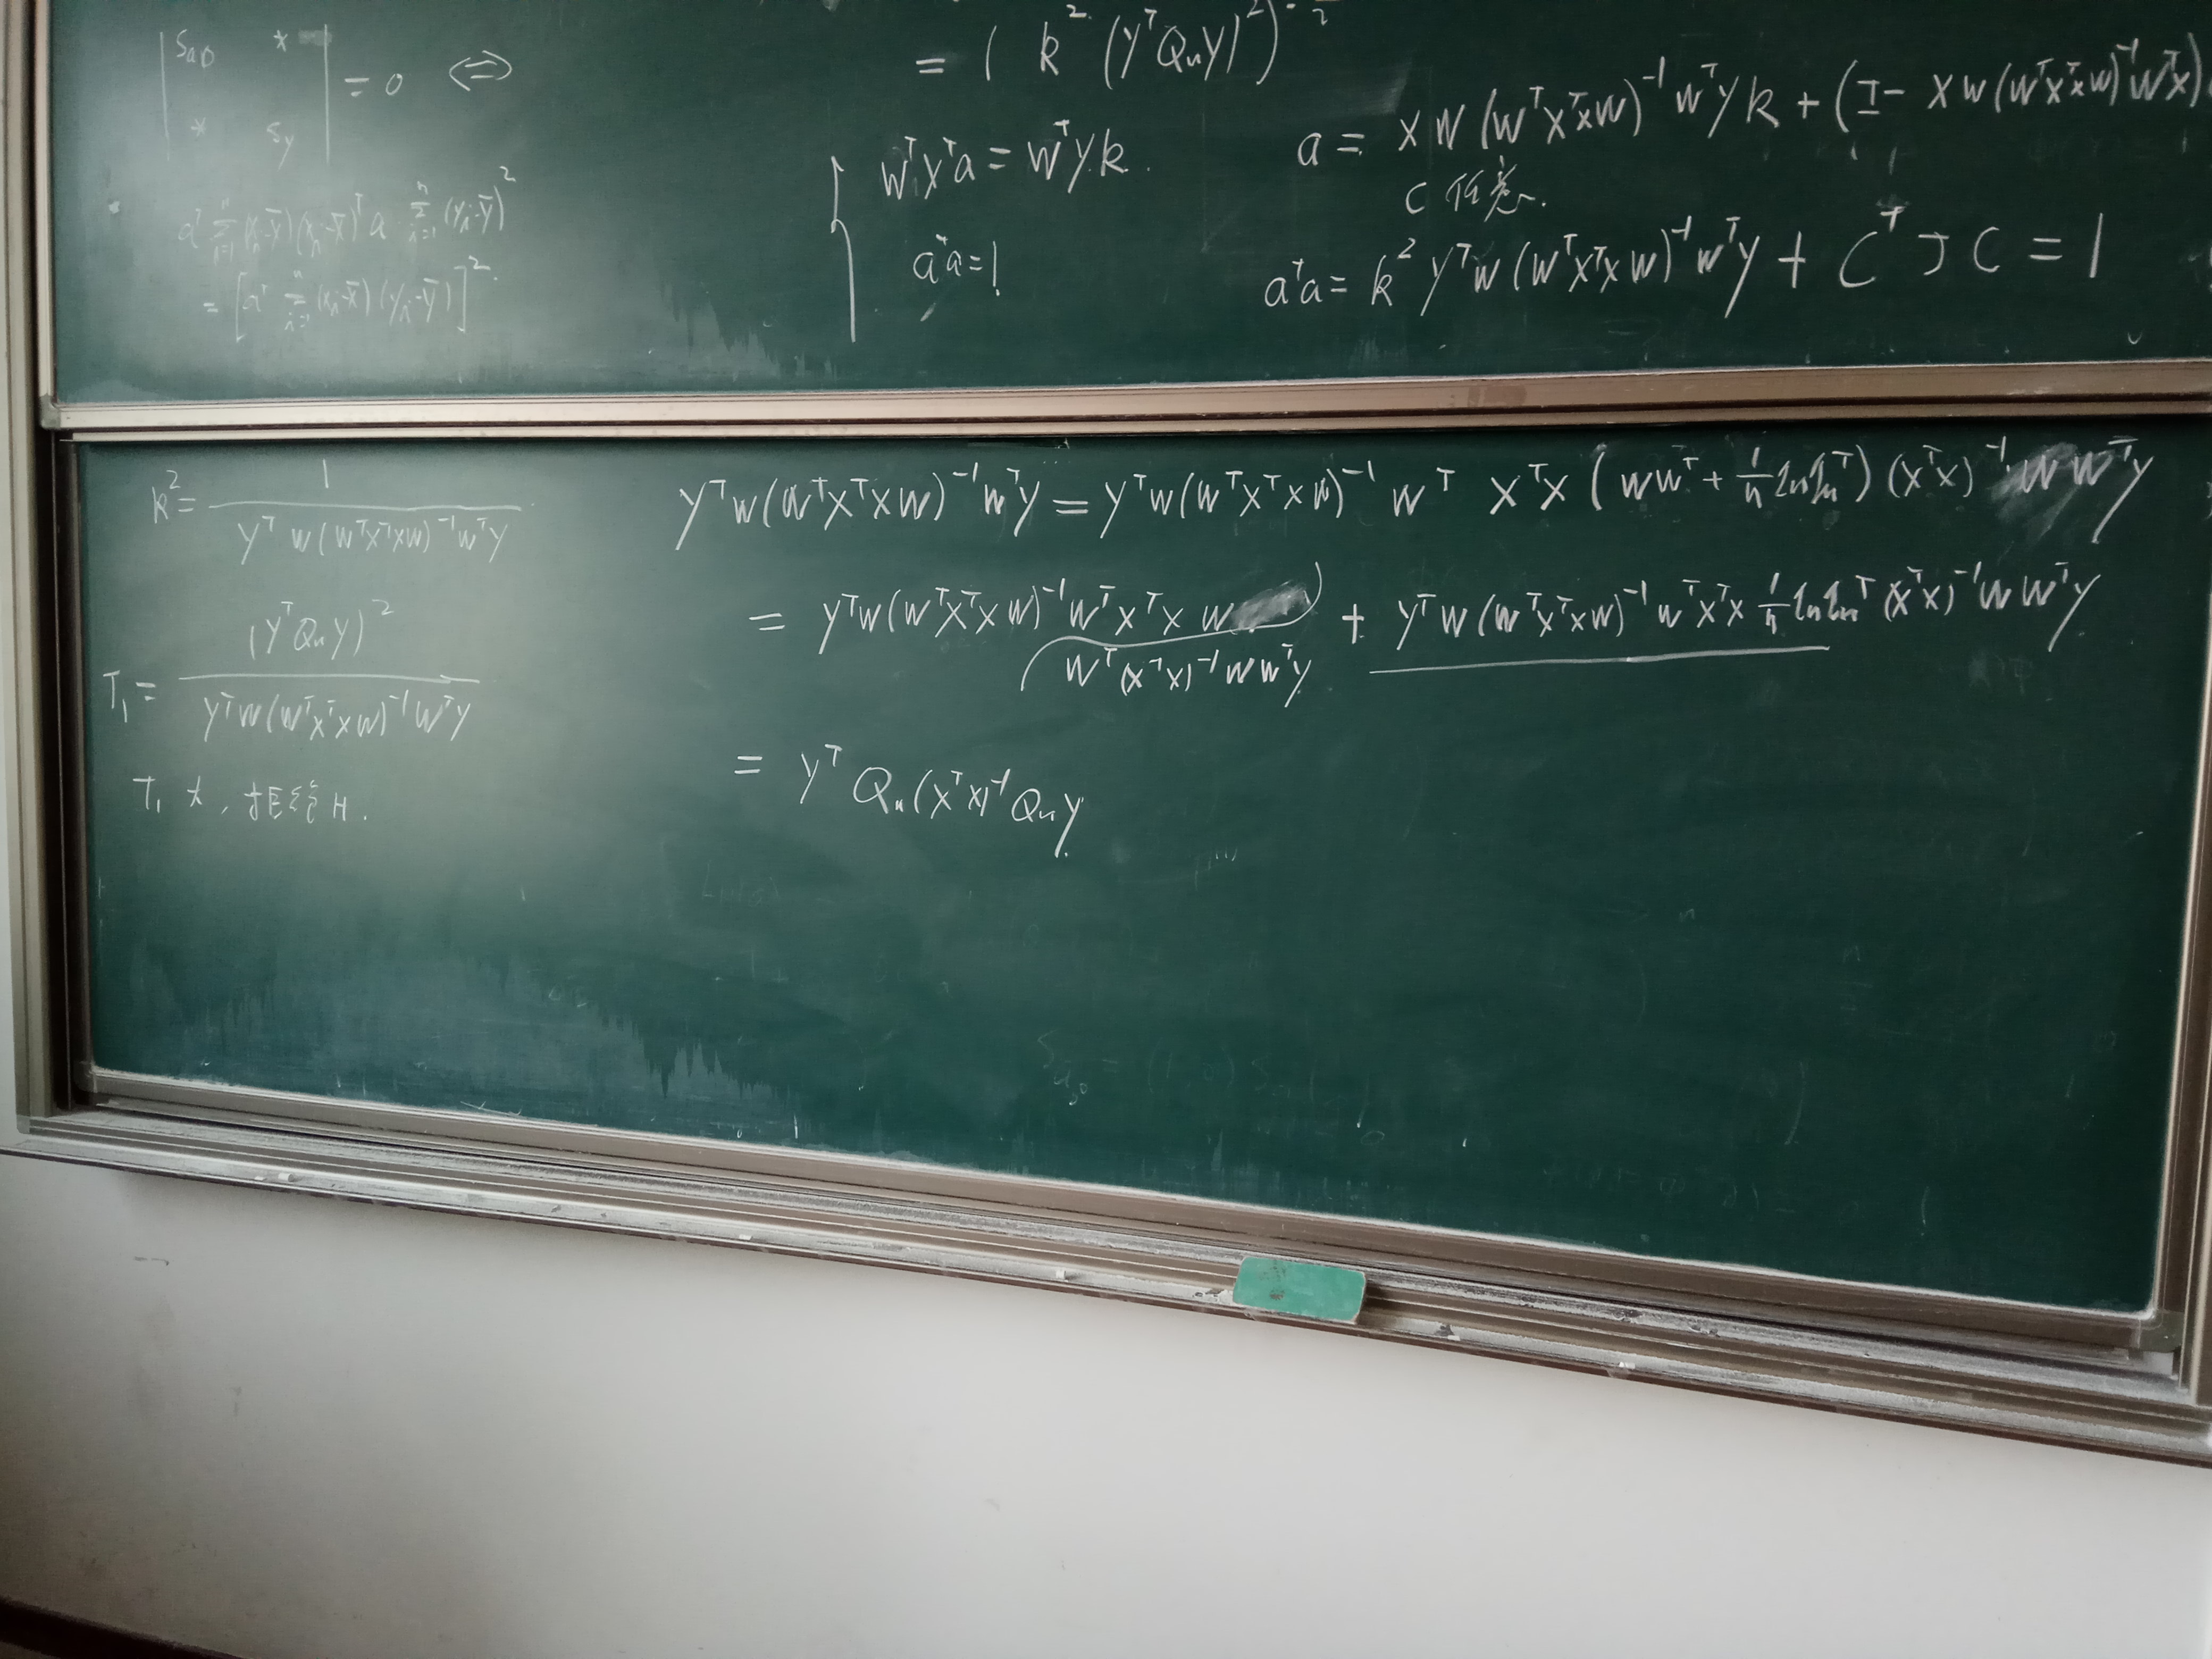 | S_{aD} * |
| * S_y | = 0 ⇔
a^T Σ_{i=1}^n (x_i-x̄)(x_i-x̄)^T a Σ_{i=1}^n (y_i-ȳ)^2
= [a^T Σ_{i=1}^n (x_i-x̄)(y_i-ȳ)]^2
= ( k^2 (y^T Q_n y)^2 )^{-1/2}
{ W^T X^T a = W^T y k.
a^T a = 1
a = X W (W^T X^T X W)^{-1} W^T y k + (I - X W (W^T X^T X W)^{-1} W^T X)
C 任意.
a^T a = k^2 y^T W (W^T X^T X W)^{-1} W^T y + C^T J C = 1
k^2 = 1 / y^T W (W^T X^T X W)^{-1} W^T y
T_1 = (y^T Q_n y)^2 / y^T W (W^T X^T X W)^{-1} W^T y
T_1 大, 拒绝 H.
y^T W (W^T X^T X W)^{-1} W^T y = y^T W (W^T X^T X W)^{-1} W^T X^T X ( W W^T + 1/n 1_n 1_n^T ) (X^T X)^{-1} W W^T y
= y^T W (W^T X^T X W)^{-1} W^T X^T X W + y^T W (W^T X^T X W)^{-1} W^T X^T X 1/n 1_n 1_n^T (X^T X)^{-1} W W^T y
W^T (X^T X)^{-1} W W^T y
= y^T Q_n (X^T X)^{-1} Q_n y